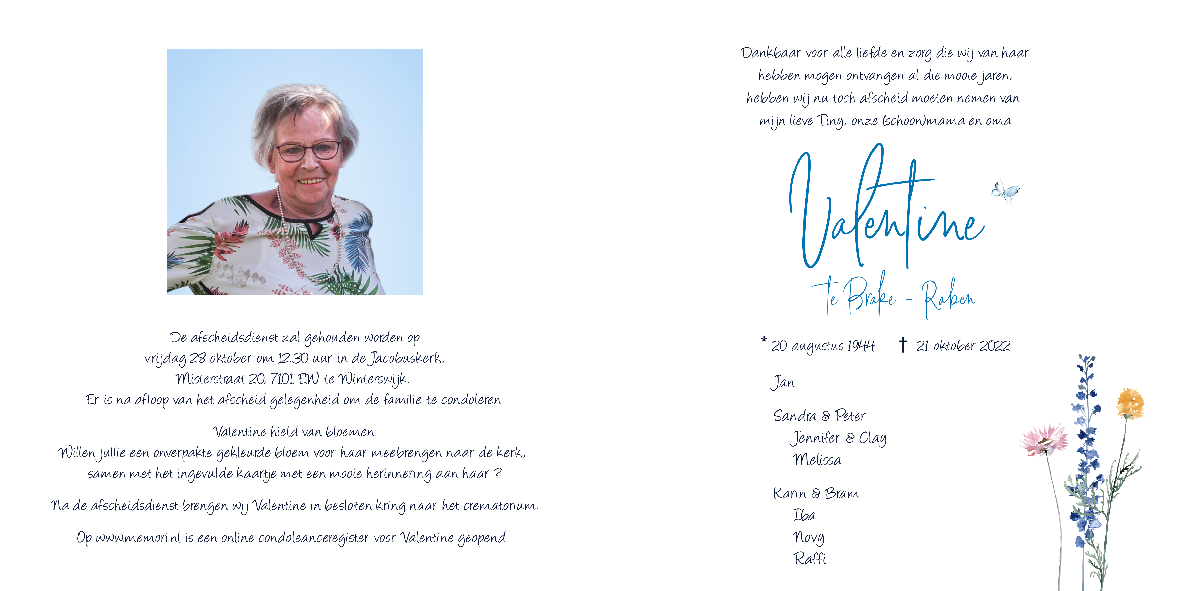 De afscheidsdienst zal gehouden worden op
vrijdag 28 oktober om 12.30 uur in de Jacobuskerk,
Misterstraat 20, 7101 EW te Winterswijk.
Er is na afloop van het afscheid gelegenheid om de familie te condoleren.
Valentine hield van bloemen.
Willen jullie een onverpakte gekleurde bloem voor haar meebrengen naar de kerk,
samen met het ingevulde kaartje met een mooie herinnering aan haar ?
Na de afscheidsdienst brengen wij Valentine in besloten kring naar het crematorium.
Op www.memori.nl is een online condoleanceregister voor Valentine geopend.
Dankbaar voor alle liefde en zorg die wij van haar
hebben mogen ontvangen al die mooie jaren,
hebben wij nu toch afscheid moeten nemen van
mijn lieve Ting, onze (schoon)mama en oma
Valentine
te Brake - Raben
* 20 augustus 1944 † 21 oktober 2022
Jan
Sandra & Peter
Jennifer & Clay
Melissa
Karin & Bram
Iba
Novy
Raffi